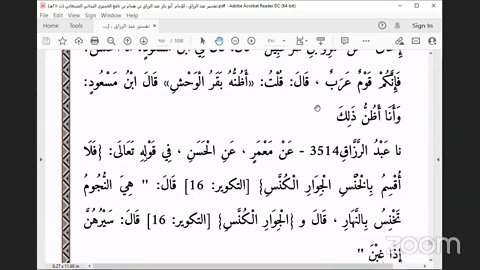 تفسير عبد الرزاق ، للإمام. أبو بكر عبد الرزاق بن همام بن نافع الحميري اليماني الصنعاني (ت.pdf - Adobe Acrobat Reader DC (64-bit)
فَإِنَّكُمْ قَوْمٌ عَرَبٌ ، قَالَ: قُلْتُ: «أَظُنُّهُ بَقَرُ الْوَحْشِ» قَالَ ابْنُ مَسْعُودٍ:
وَأَنَا أَظُنُّ ذَلِكَ
نا عَبْدُ الرَّزَّاقِ3514 - عَنْ مَعْمَرٍ ، عَنِ الْحَسَنِ ، فِي قَوْلِهِ تَعَالَى: {فَلَا
أُقْسِمُ بِالْخُنَّسِ الْجِوَارِ الْكُنَّسِ} [التكوير: 16] قَالَ: " هِيَ النُّجُومُ
تَخْنِسُ بِالنَّهَارِ ، قَالَ و {الْجِوَارِ الْكُنَّسِ} [التكوير: 16] قَالَ: سَيْرُهُنَّ
إِذَا غِبْنَ "
8,27 x 11,69 in
zoom